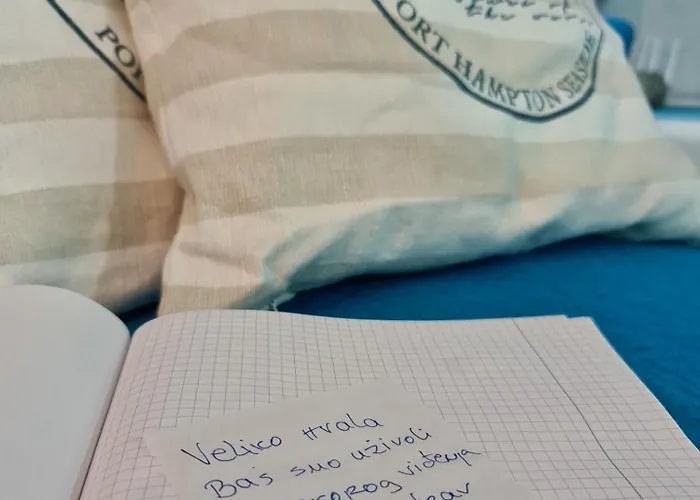 POR
PORT HAMPTON SEASIDE
Veliko Hvala
Baš smo uživali
skorog viđenja